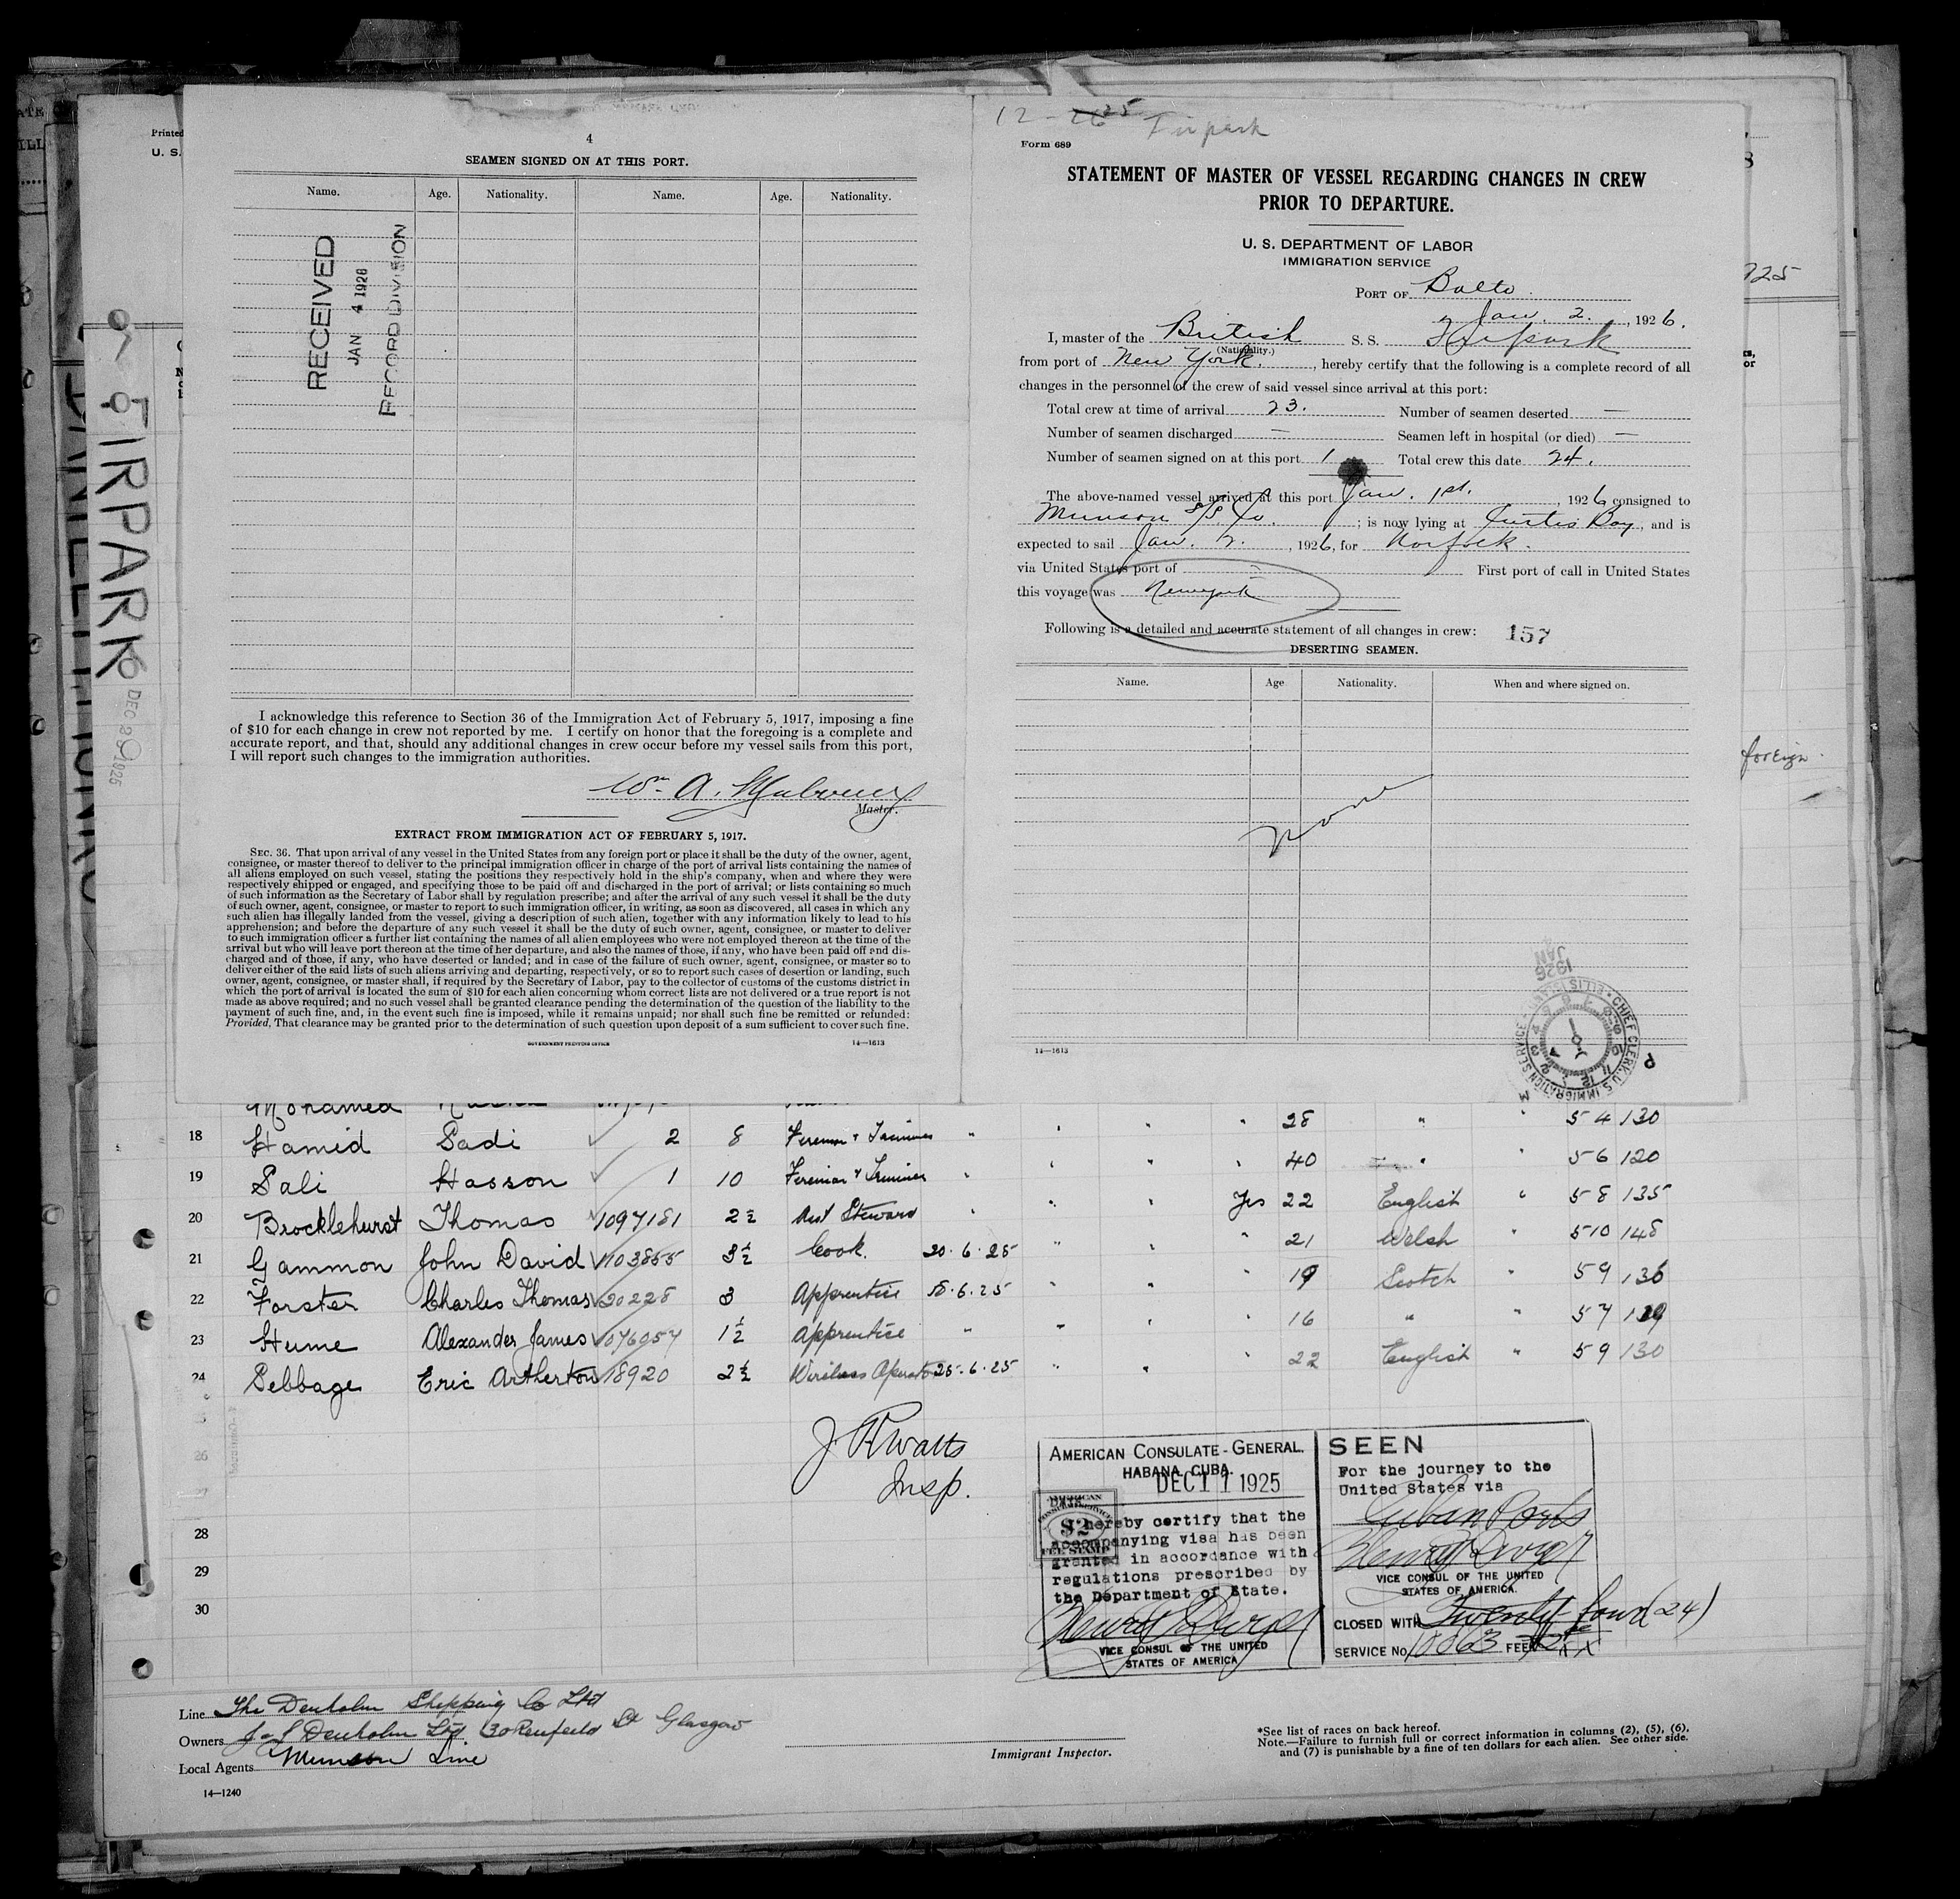 4
SEAMEN SIGNED ON AT THIS PORT.
Name. Age. Nationality. Name. Age. Nationality.
RECEIVED
JAN 4 1926
RECORD DIVISION
I acknowledge this reference to Section 36 of the Immigration Act of February 5, 1917, imposing a fine
of $10 for each change in crew not reported by me. I certify on honor that the foregoing is a complete and
accurate report, and that, should any additional changes in crew occur before my vessel sails from this port,
I will report such changes to the immigration authorities.
Wm A.
Master.
EXTRACT FROM IMMIGRATION ACT OF FEBRUARY 5, 1917.
SEC. 36. That upon arrival of any vessel in the United States from any foreign port or place it shall be the duty of the owner, agent,
consignee, or master thereof to deliver to the principal immigration officer in charge of the port of arrival lists containing the names of
all aliens employed on such vessel, stating the positions they respectively hold in the ship's company, when and where they were
respectively shipped or engaged, and specifying those to be paid off and discharged in the port of arrival; or lists containing so much
of such information as the Secretary of Labor shall by regulation prescribe; and after the arrival of any such vessel it shall be the duty
of such owner, agent, consignee, or master to report to such immigration officer, in writing, as soon as discovered, all cases in which any
such alien has illegally landed from the vessel, giving a description of such alien, together with any information likely to lead to his
apprehension; and before the departure of any such vessel it shall be the duty of such owner, agent, consignee, or master to deliver
to such immigration officer a further list containing the names of all alien employees who were not employed thereon at the time of the
arrival but who will leave port thereon at the time of her departure, and also the names of those, if any, who have been paid off and dis-
charged and of those, if any, who have deserted or landed; and in case of the failure of such owner, agent, consignee, or master so to
deliver either of the said lists of such aliens arriving and departing, respectively, or so to report such cases of desertion or landing, such
owner, agent, consignee, or master shall, if required by the Secretary of Labor, pay to the collector of customs of the customs district in
which the port of arrival is located the sum of $10 for each alien concerning whom correct lists are not delivered or a true report is not
made as above required; and no such vessel shall be granted clearance pending the determination of the question of the liability to the
payment of such fine, and, in the event such fine is imposed, while it remains unpaid; nor shall such fine be remitted or refunded:
Provided, That clearance may be granted prior to the determination of such question upon deposit of a sum sufficient to cover such fine.
GOVERNMENT PRINTING OFFICE 14—1613
12 - 26 25 Firpark
Form 689
STATEMENT OF MASTER OF VESSEL REGARDING CHANGES IN CREW
PRIOR TO DEPARTURE.
U. S. DEPARTMENT OF LABOR
IMMIGRATION SERVICE
PORT OF Balto.
Jan. 2. , 1926.
I, master of the British S. S. Firpark
(Nationality.)
from port of New York. , hereby certify that the following is a complete record of all
changes in the personnel of the crew of said vessel since arrival at this port:
Total crew at time of arrival 23. Number of seamen deserted —
Number of seamen discharged — Seamen left in hospital (or died) —
Number of seamen signed on at this port 1 Total crew this date 24.
The above-named vessel arrived at this port Jan. 1st. , 1926 consigned to
Munson S/S Co. ; is now lying at Curtis Bay, and is
expected to sail Jan. 2. , 1926, for Norfolk.
via United States port of First port of call in United States
this voyage was New york
Following is a detailed and accurate statement of all changes in crew: 157
DESERTING SEAMEN.
Name. Age Nationality. When and where signed on.
None
CHIEF CLERK, U.S. IMMIGRATION SERVICE ELLIS ISLAND
JAN 1926
14—1613
Printed
U. S.
FIRPARK
DEC 29 1925
725
foreign
Mohamed 28 " " 5 4 130
18 Hamid Sadi 2 8 Fireman & Trimmer " " " " 40 " " 5 6 120
19 Sali Hasson 1 10 Fireman & Trimmer " " " Yes 22 English " 5 8 135
20 Brocklehurst Thomas 1097181 2½ Asst Steward " " " " 21 Welsh 5 10 148
21 Gammon John David 1103855 3½ Cook. 20.6.25 " " " 19 Scotch " 5 9 136
22 Forster Charles Thomas 20228 3 Apprentice 18.6.25 " " " 16 " " 5 7 129
23 Hume Alexander James 1076057 1½ Apprentice " " " " 22 English " 5 9 130
24 Sebbage Eric Artherton 18920 2½ Wireless Operator 25.6.25 " "
26
28
29
30
J R Watts
Insp.
AMERICAN CONSULATE-GENERAL.
HABANA, CUBA.
DEC 11 1925
I hereby certify that the
accompanying visa has been
granted in accordance with
regulations prescribed by
the Department of State.
VICE CONSUL OF THE UNITED
STATES OF AMERICA
AMERICAN
CONSULAR SERVICE
$2
FEE STAMP
SEEN
For the journey to the
United States via
Cuban Ports
VICE CONSUL OF THE UNITED
STATES OF AMERICA.
CLOSED WITH Twenty four (24)
SERVICE No. 10063 FEE $2
Line The Denholm Shipping Co Ltd
Owners J & J Denholm Ltd. 30 Renfield St Glasgow
Local Agents Munson Line
Immigrant Inspector.
*See list of races on back hereof.
Note.—Failure to furnish full or correct information in columns (2), (5), (6),
and (7) is punishable by a fine of ten dollars for each alien. See other side.
14—1240